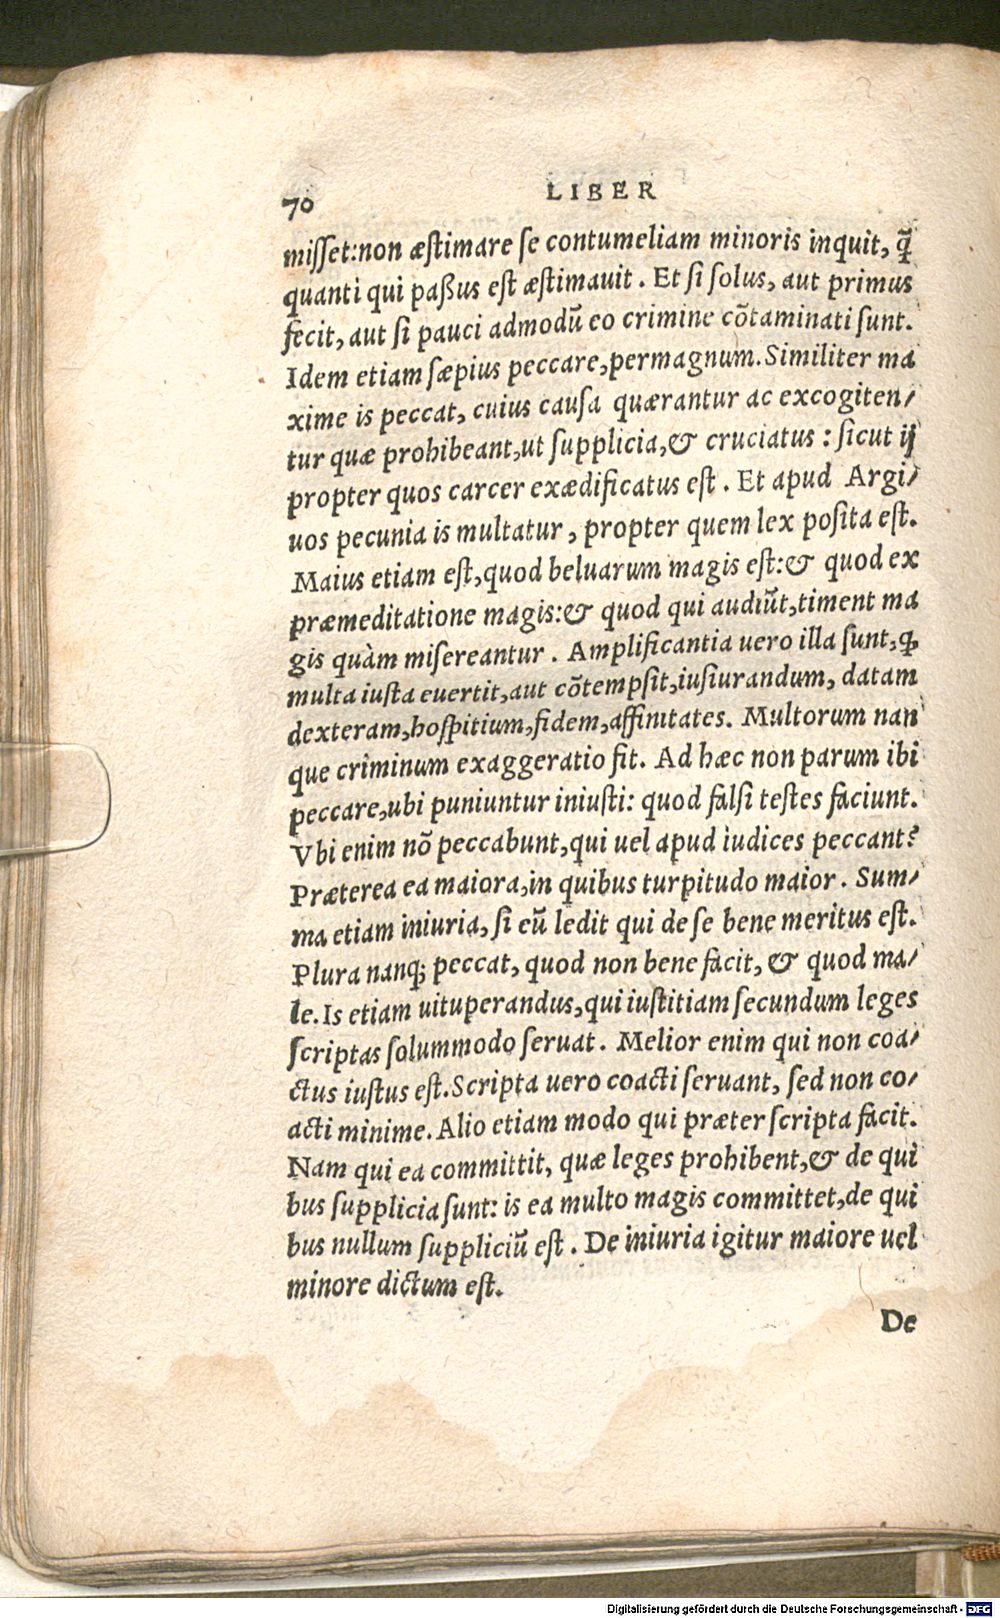 70 LIBER
misset:non æstimare se contumeliam minoris inquit, q̃
quanti qui paßus est æstimauit. Et si solus, aut primus
fecit, aut si pauci admodũ eo crimine cõtaminati sunt.
Idem etiam sæpius peccare,permagnum. Similiter ma
xime is peccat, cuius causa quærantur ac excogiten/
tur quæ prohibeant,ut supplicia,& cruciatus: sicut ij
propter quos carcer exædificatus est. Et apud Argi/
uos pecunia is multatur, propter quem lex posita est.
Maius etiam est,quod beluarum magis est:& quod ex
præmeditatione magis:& quod qui audiũt,timent ma
gis quàm misereantur. Amplificantia uero illa sunt,ꝙ
multa iusta euertit,aut cõtempsit,iusiurandum, datam
dexteram,hospitium,fidem,affinitates. Multorum nan
que criminum exaggeratio fit. Ad hæc non parum ibi
peccare,ubi puniuntur iniusti: quod falsi testes faciunt.
Vbi enim nõ peccabunt,qui uel apud iudices peccant?
Præterea ea maiora,in quibus turpitudo maior. Sum/
ma etiam iniuria, si eũ ledit qui de se bene meritus est.
Plura nanq; peccat, quod non bene facit, & quod ma/
le. Is etiam uituperandus,qui iustitiam secundum leges
scriptas solummodo seruat. Melior enim qui non coa/
ctus iustus est. Scripta uero coacti seruant, sed non co/
acti minime. Alio etiam modo qui præter scripta facit.
Nam qui ea committit, quæ leges prohibent,& de qui
bus supplicia sunt: is ea multo magis committet,de qui
bus nullum suppliciũ est. De iniuria igitur maiore uel
minore dictum est.
De
Digitalisierung gefördert durch die Deutsche Forschungsgemeinschaft - DFG